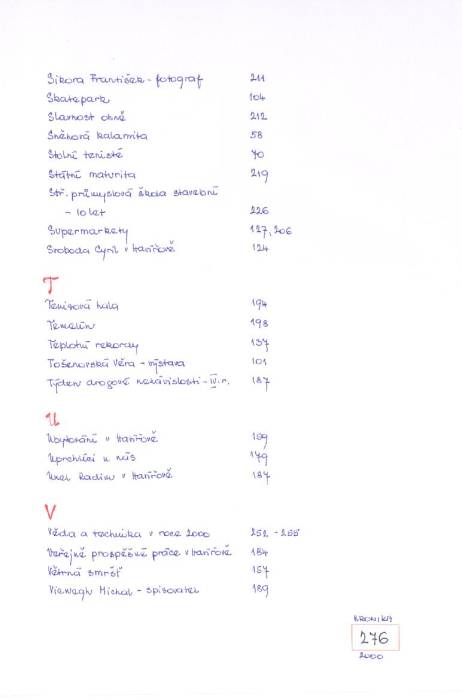 Sikora František - fotograf 211
Skatepark 104
Slavnost ohně 212
Sněhová kalamita 58
Stolní tenisté 70
Státní maturita 219
Stř. průmyslová škola stavební
- 10 let 226
Supermarkety 127, 206
Svoboda Cyril v Havířově 124
T
Tenisová hala 194
Temelín 198
Teplotní rekordy 157
Tošenovská Věra - výstava 101
Týden drogové nezávislosti - IV. r. 187
U
Ubytování v Havířově 199
Uprchlíci u nás 179
Unel Radim v Havířově 187
V
Věda a technika v roce 2000 252 - 255
Veřejně prospěšné práce v Havířově 184
Větrná smršť 157
Viewegh Michal - spisovatel 189
KRONIKA
276
2000